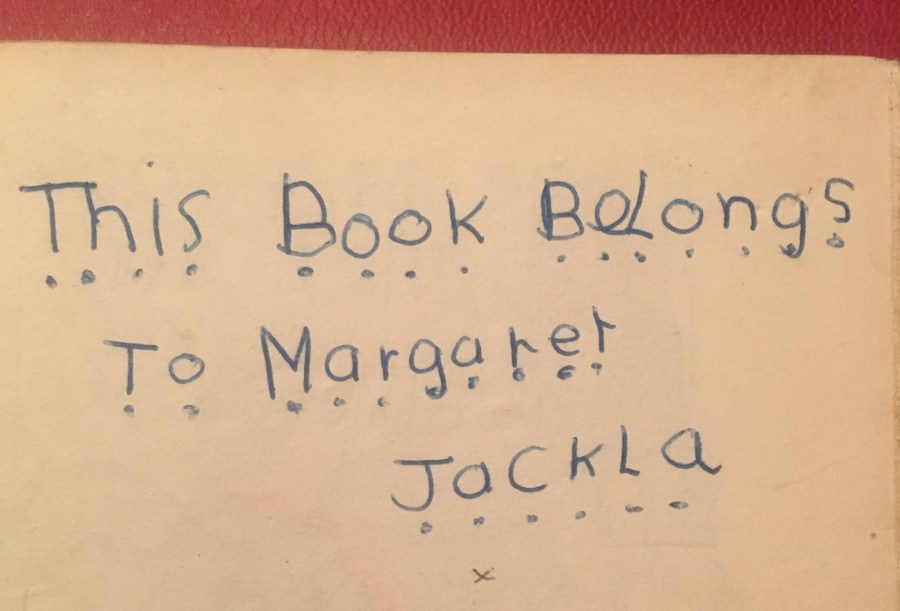 This Book BeLongs
To Margaret
JaCKLa
x